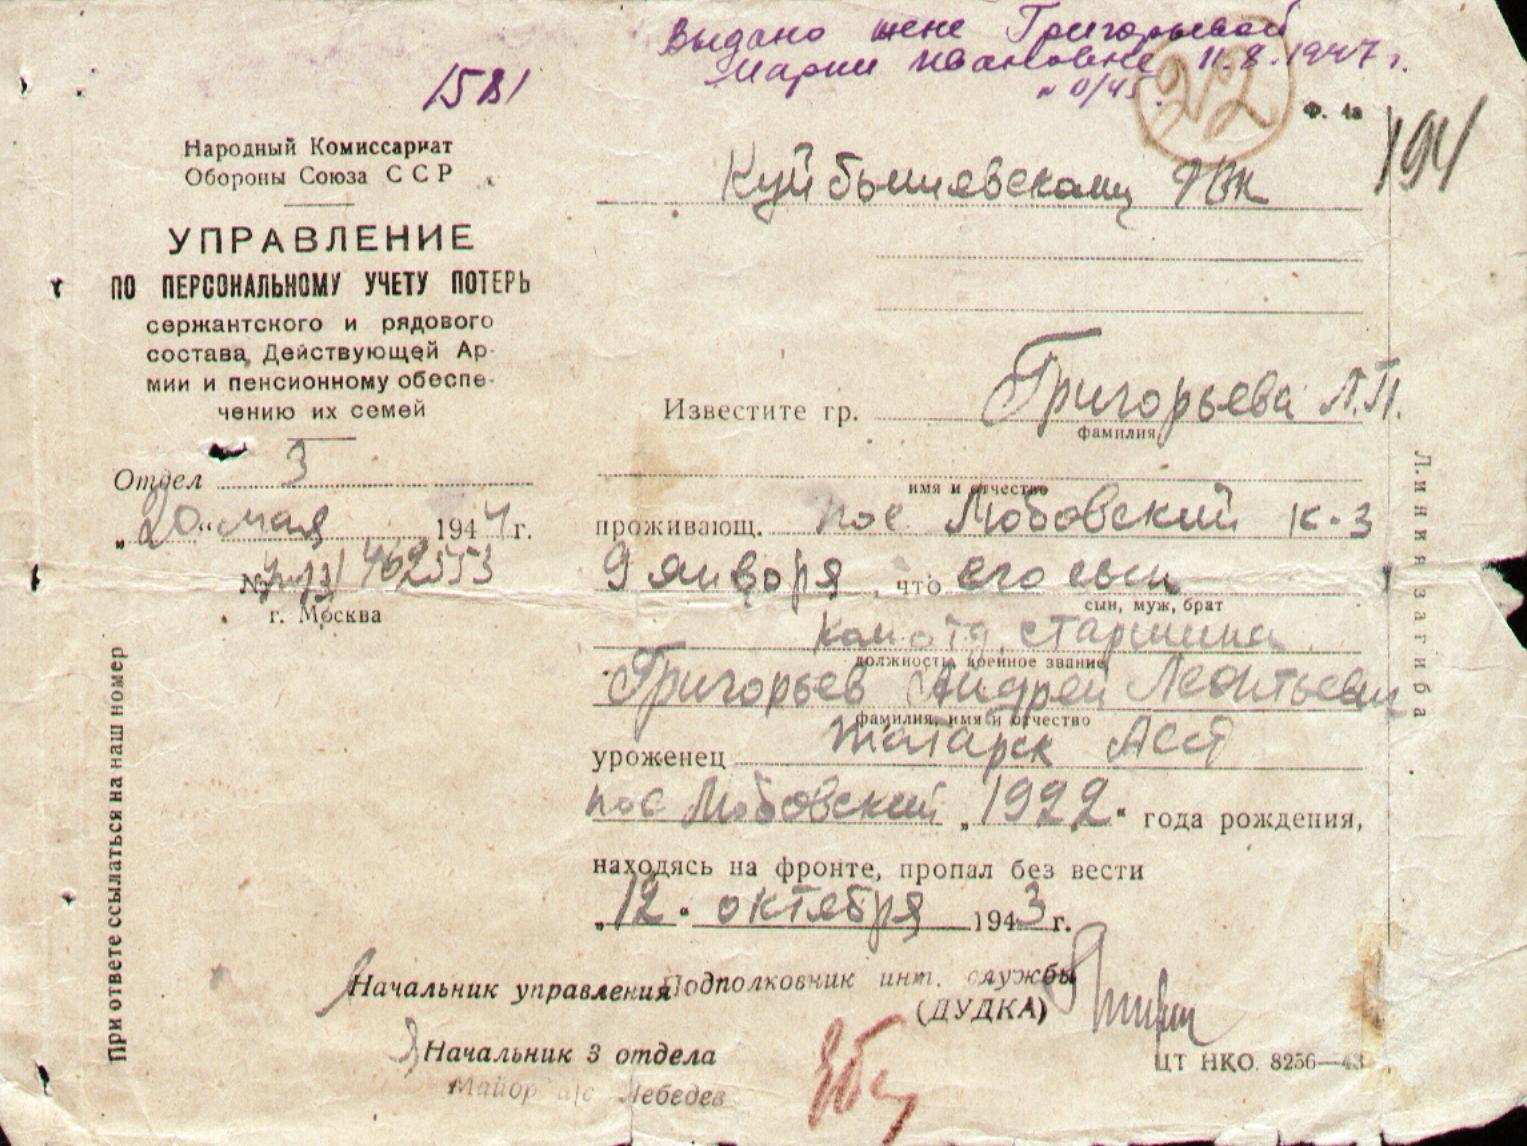 Выдано жене Григорьевой
Марии Ивановне 11.8.1947 г.
1581
22
Ф. 4а
194
Народный Комиссариат
Обороны Союза ССР
УПРАВЛЕНИЕ
ПО ПЕРСОНАЛЬНОМУ УЧЕТУ ПОТЕРЬ
сержантского и рядового
состава Действующей Ар-
мии и пенсионному обеспе-
чению их семей
Отдел 3
„20“ мая 1944 г.
№ 462553
г. Москва
При ответе ссылаться на наш номер
Куйбышевскому РВК
Известите гр. Григорьева Л.П.
фамилия
имя и отчество
проживающ. пос Лобовский к-з
9 января, что его сын
сын, муж, брат
ком отд. старшина
должность, военное звание
Григорьев Андрей Леонтьевич
фамилия, имя и отчество
уроженец Татарск
пос Лобовский „1922“ года рождения,
находясь на фронте, пропал без вести
„12“ октября 1943 г.
Начальник управления Подполковник инт. службы
(ДУДКА)
Начальник 3 отдела
Майор а/с Лебедев
ЦТ НКО. 8256—43
Линия загиба